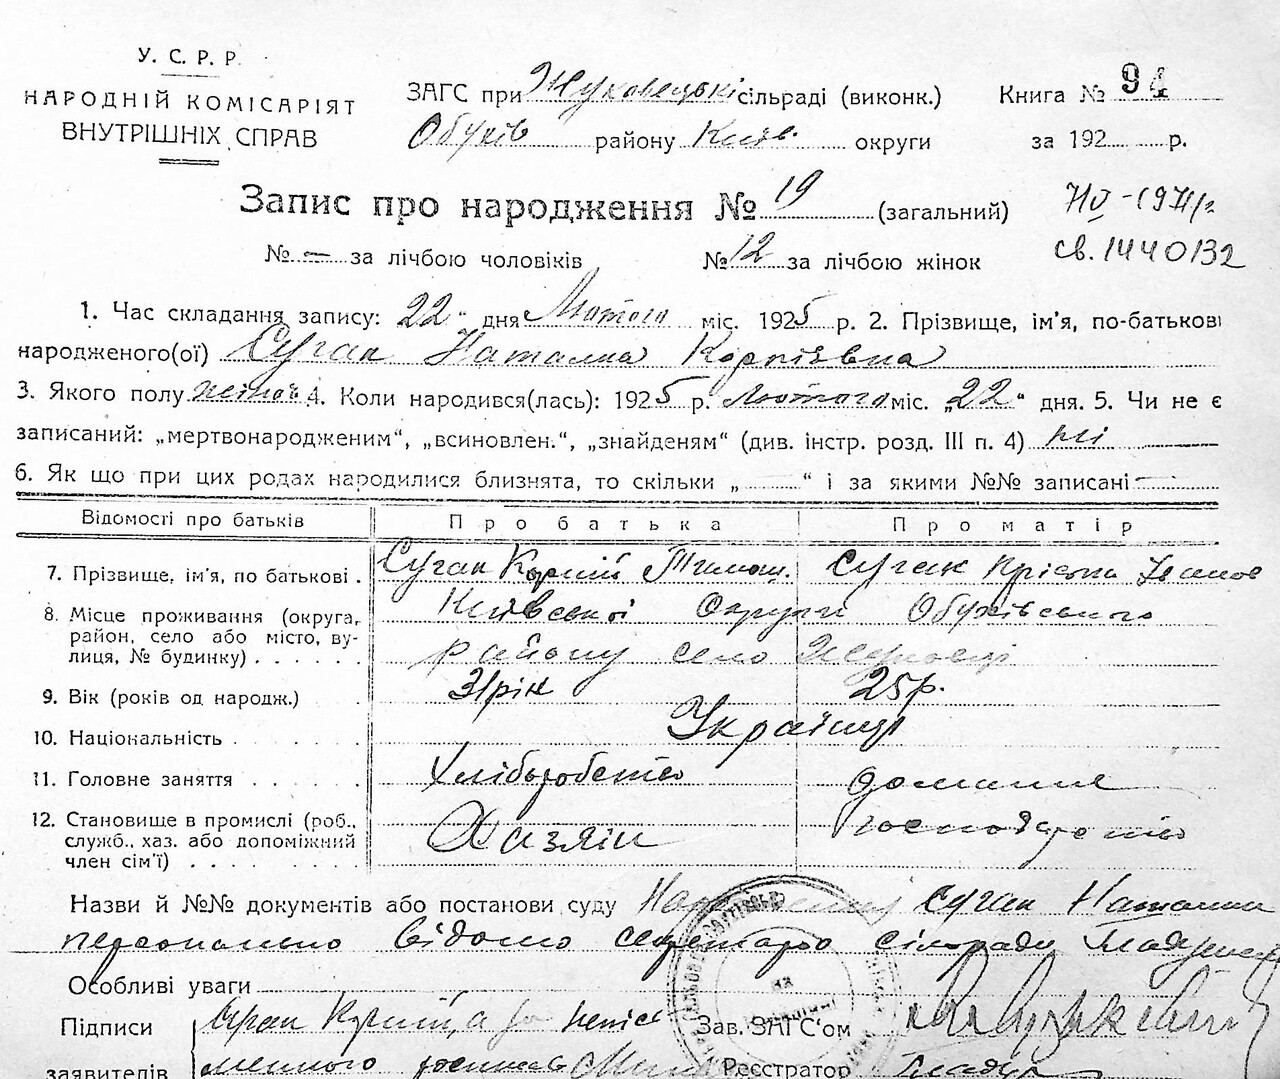 У. С. Р. Р.
НАРОДНІЙ КОМІСАРІЯТ
ВНУТРІШНІХ СПРАВ
ЗАГС при Жуковецькі сільраді (виконк.)
Обухів району Київ. округи
Книга № 94
за 192 р.
Запис про народження № 19 (загальний)
№ — за лічбою чоловіків № 12 за лічбою жінок
св. 1440132
1. Час складання запису: 22 " дня Лютого міс. 1925 р. 2. Прізвище, ім'я, по-батькові
народженого(ої) Суган Наталка Корніївна
3. Якого полу жіноч 4. Коли народився(лась): 1925 р. Лютого міс. „22" дня. 5. Чи не є
записаний: „мертвонародженим", „всиновлен.", „знайденям" (див. інстр. розд. III п. 4) ні
6. Як що при цих родах народилися близнята, то скільки „ " і за якими №№ записані —
Відомості про батьків Про батька Про матір
7. Прізвище, ім'я, по батькові . Суган Корній Тимош. Суган Крістка Іванов
8. Місце проживання (округа, район, село або місто, вулиця, № будинку) . . . . . . Київської Округи Обухівського
району село
9. Вік (років од народж.) . 31 рік 25 р.
10. Національність . . . . . . Українці
11. Головне заняття . . . . . Хліборобство домашнє
12. Становище в промислі (роб., служб., хаз. або допоміжний член сім'ї) . . . . . . . Хазяїн господарство
Назви й №№ документів або постанови суду Народження Суган Наталки
персонально відомо секретарю сільради
Особливі уваги
Підписи Суган Корнійця за непись
заявителів менного росписавсь
Зав. ЗАГС'ом
Реєстратор